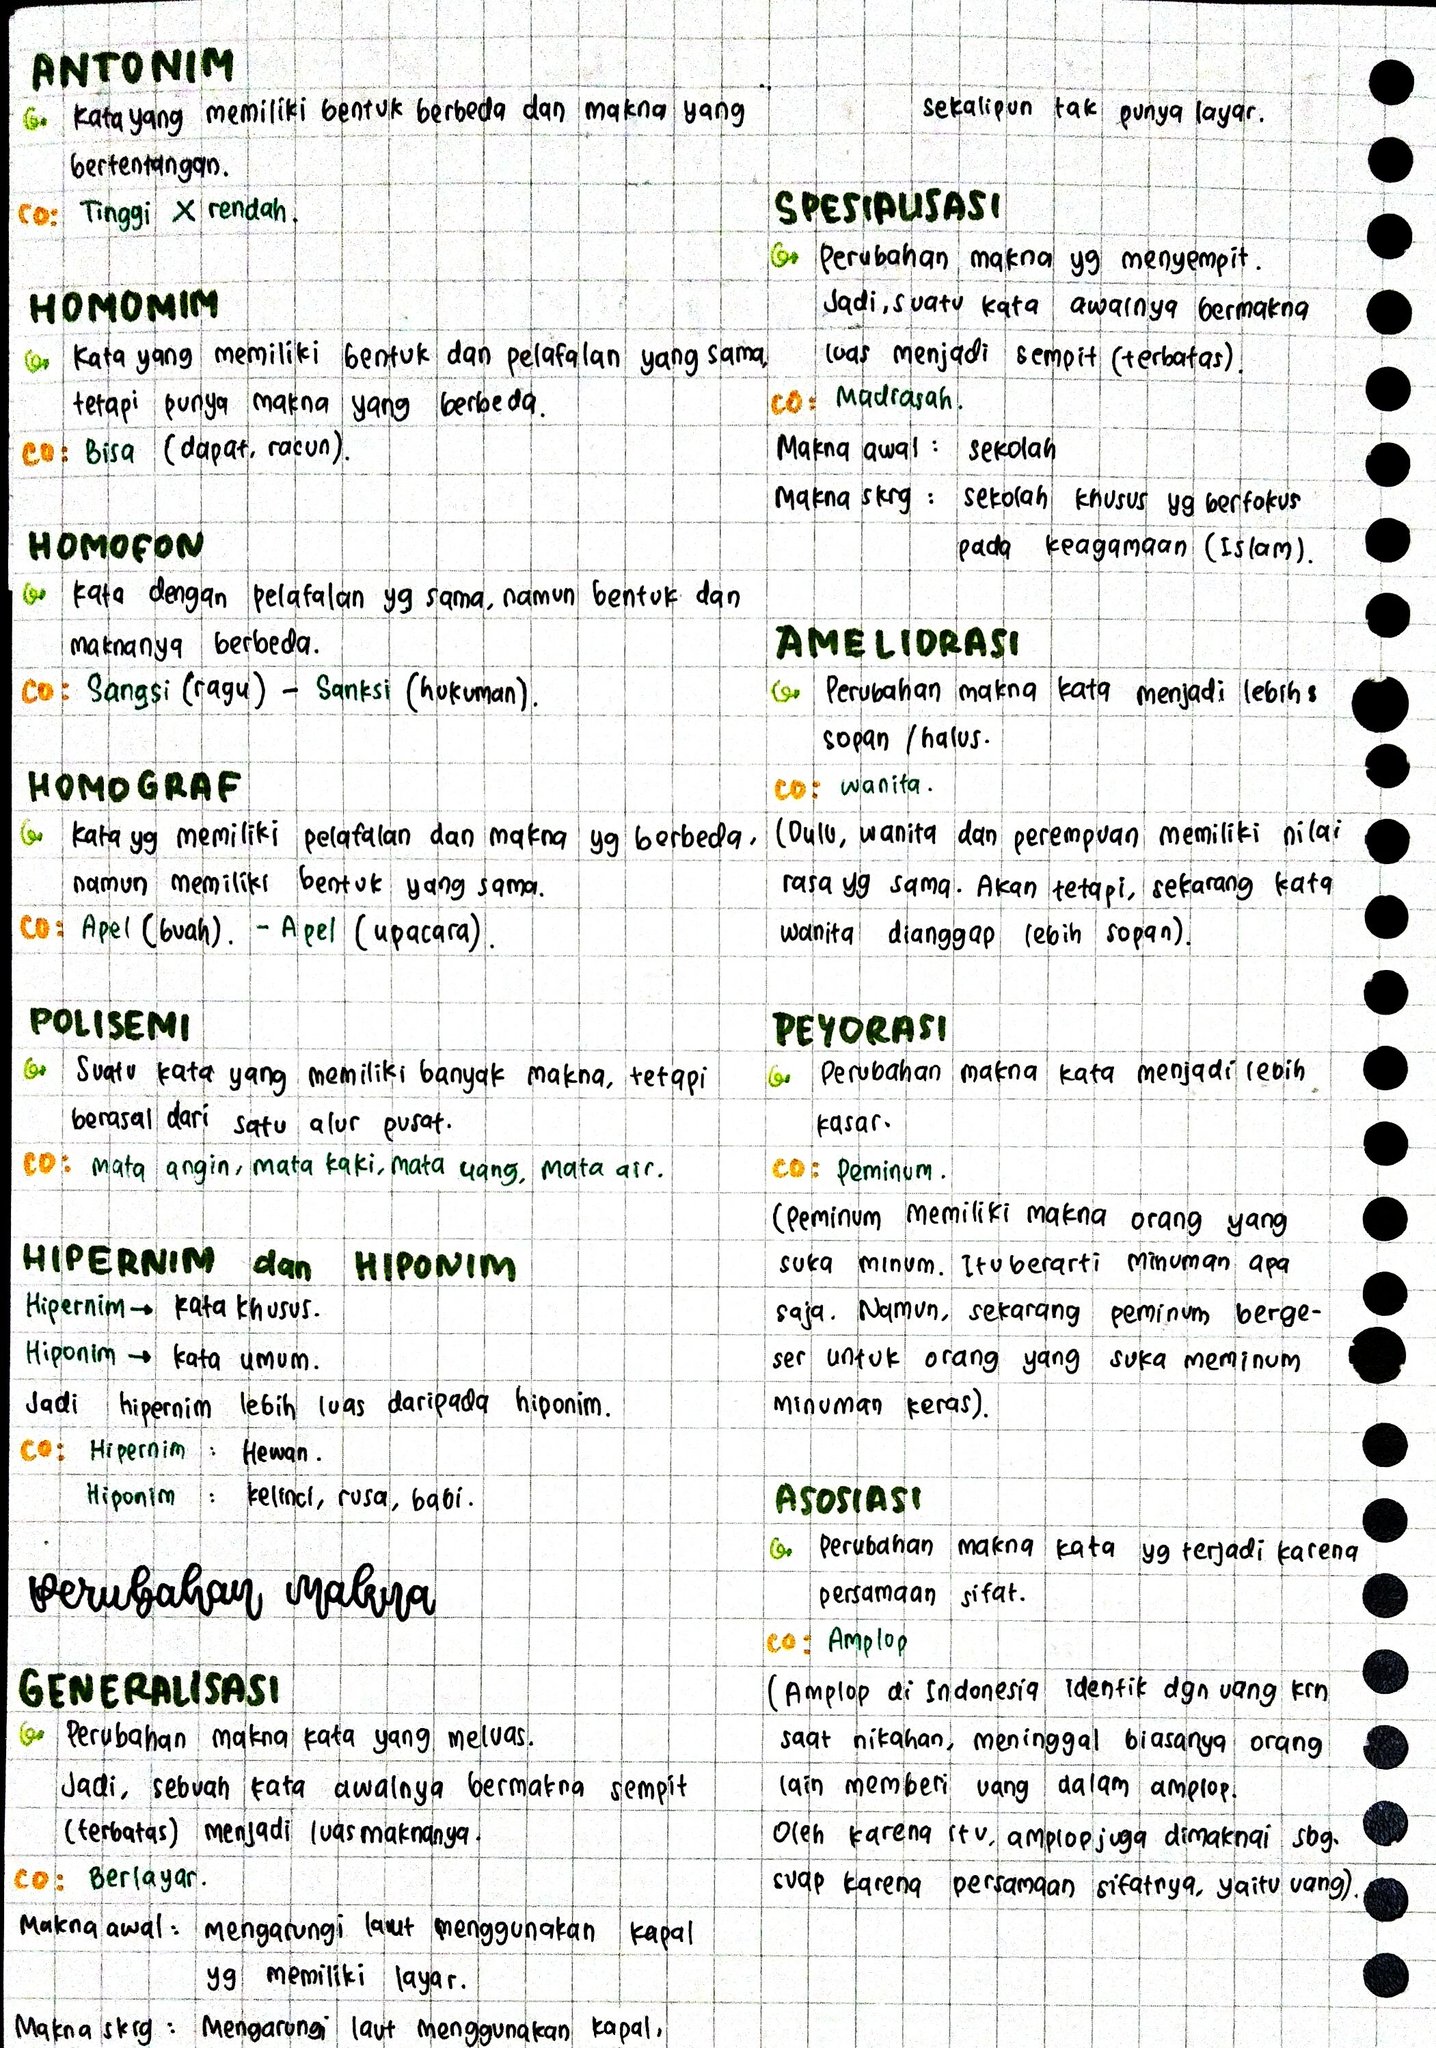 ANTONIM
Kata yang memiliki bentuk berbeda dan makna yang
bertentangan.
CO: Tinggi X rendah.
HOMOMIM
Kata yang memiliki bentuk dan pelafalan yang sama,
tetapi punya makna yang berbeda.
CO: Bisa (dapat, racun).
HOMOFON
Kata dengan pelafalan yg sama, namun bentuk dan
maknanya berbeda.
CO: Sangsi (ragu) - Sanksi (hukuman).
HOMOGRAF
Kata yg memiliki pelafalan dan makna yg berbeda,
namun memiliki bentuk yang sama.
CO: Apel (buah). - Apel (upacara).
POLISEMI
Suatu kata yang memiliki banyak makna, tetapi
berasal dari satu alur pusat.
CO: mata angin, mata kaki, mata uang, mata air.
HIPERNIM dan HIPONIM
Hipernim → kata khusus.
Hiponim → kata umum.
Jadi hipernim lebih luas daripada hiponim.
CO: Hipernim : Hewan.
Hiponim : kelinci, rusa, babi.
Perubahan Makna
GENERALISASI
Perubahan makna kata yang meluas.
Jadi, sebuah kata awalnya bermakna sempit
(terbatas) menjadi luas maknanya.
CO: Berlayar.
Makna awal: mengarungi laut menggunakan kapal
yg memiliki layar.
Makna skrg : Mengarungi laut menggunakan kapal,
sekalipun tak punya layar.
SPESIALISASI
Perubahan makna yg menyempit.
Jadi, suatu kata awalnya bermakna
luas menjadi sempit (terbatas).
CO: Madrasah.
Makna awal : sekolah
Makna skrg : sekolah khusus yg berfokus
pada keagamaan (Islam).
AMELIORASI
Perubahan makna kata menjadi lebih s
sopan /halus.
CO: wanita.
(Dulu, wanita dan perempuan memiliki nilai
rasa yg sama. Akan tetapi, sekarang kata
wanita dianggap lebih sopan).
PEYORASI
Perubahan makna kata menjadi lebih
kasar.
CO: Peminum.
(Peminum memiliki makna orang yang
suka minum. Itu berarti minuman apa
saja. Namun, sekarang peminum berge-
ser untuk orang yang suka meminum
minuman keras).
ASOSIASI
Perubahan makna kata yg terjadi karena
persamaan sifat.
CO: Amplop
(Amplop di Indonesia identik dgn uang krn
saat nikahan, meninggal biasanya orang
lain memberi uang dalam amplop.
Oleh karena itu, amplop juga dimaknai sbg.
suap karena persamaan sifatnya, yaitu uang).